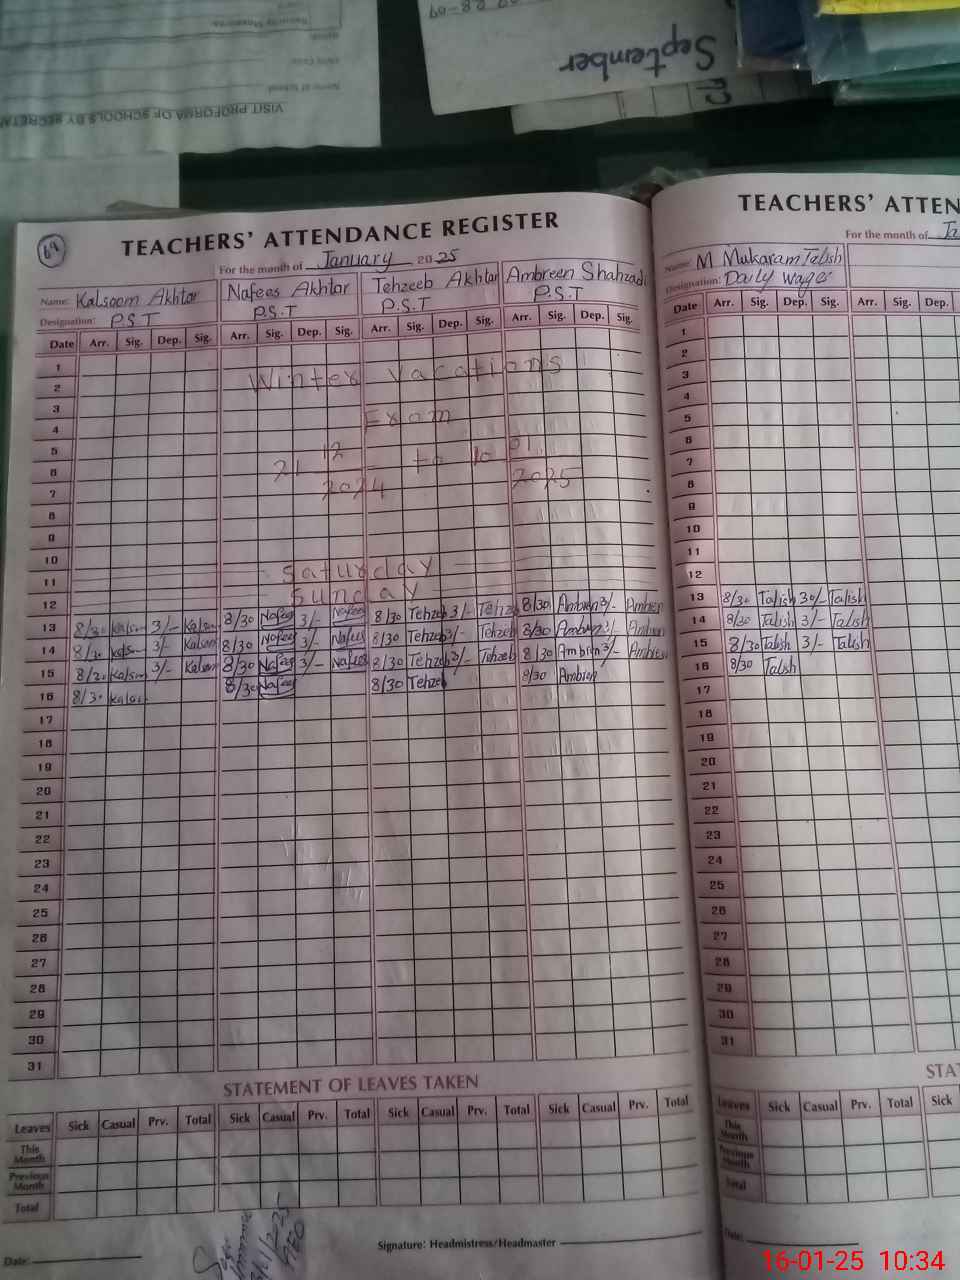 VISIT PROFORMA OF SCHOOLS BY SECRETA
Name of School
September
69
TEACHERS' ATTENDANCE REGISTER
For the month of January 2025
Name: Kalsoom Akhtar Nafees Akhtar Tehzeeb Akhtar Ambreen Shahzadi
Designation: P.S.T P.S.T P.S.T P.S.T
Date Arr. Sig. Dep. Sig. Arr. Sig. Dep. Sig. Arr. Sig. Dep. Sig. Arr. Sig. Dep. Sig.
1
2 Winter Vacations
3
4 Exom
5
6 21 12 2024 to 10 01 2025
7
8
9
10
11 Saturday
12 Sunday
13 8/30 Kalsom 3/- Kalsom 8/30 Nafees 3/- Nafees 8/30 Tehzeb 3/- Tehzeb 8/30 Ambren 3/- Ambren
14 8/30 Kalsom 3/- Kalsom 8/30 Nafees 3/- Nafees 8/30 Tehzeb 3/- Tehzeb 8/30 Ambren 3/- Ambren
15 8/30 Kalsom 3/- Kalsom 8/30 Nafees 3/- Nafees 8/30 Tehzeb 3/- Tehzeb 8/30 Ambren 3/- Ambren
16 8/30 Kalsom 8/30 Nafees 8/30 Tehzeb 8/30 Ambren
17
18
19
20
21
22
23
24
25
26
27
28
29
30
31
STATEMENT OF LEAVES TAKEN
Leaves Sick Casual Prv. Total Sick Casual Prv. Total Sick Casual Prv. Total Sick Casual Prv. Total
This Month
Previous Month
Total
Date:
Signature: Headmistress/Headmaster
TEACHERS' ATTEN
For the month of Ja
Name: M Mukaram Talish
Designation: Daily wages
Date Arr. Sig. Dep. Sig. Arr. Sig. Dep.
1
2
3
4
5
6
7
8
9
10
11
12
13 8/30 Talish 30/- Talish
14 8/30 Talish 3/- Talish
15 8/30 Talish 3/- Talish
16 8/30 Talish
17
18
19
20
21
22
23
24
25
26
27
28
29
30
31
STAT
Leaves Sick Casual Prv. Total Sick
This Month
Previous Month
Total
Date:
16-01-25 10:34